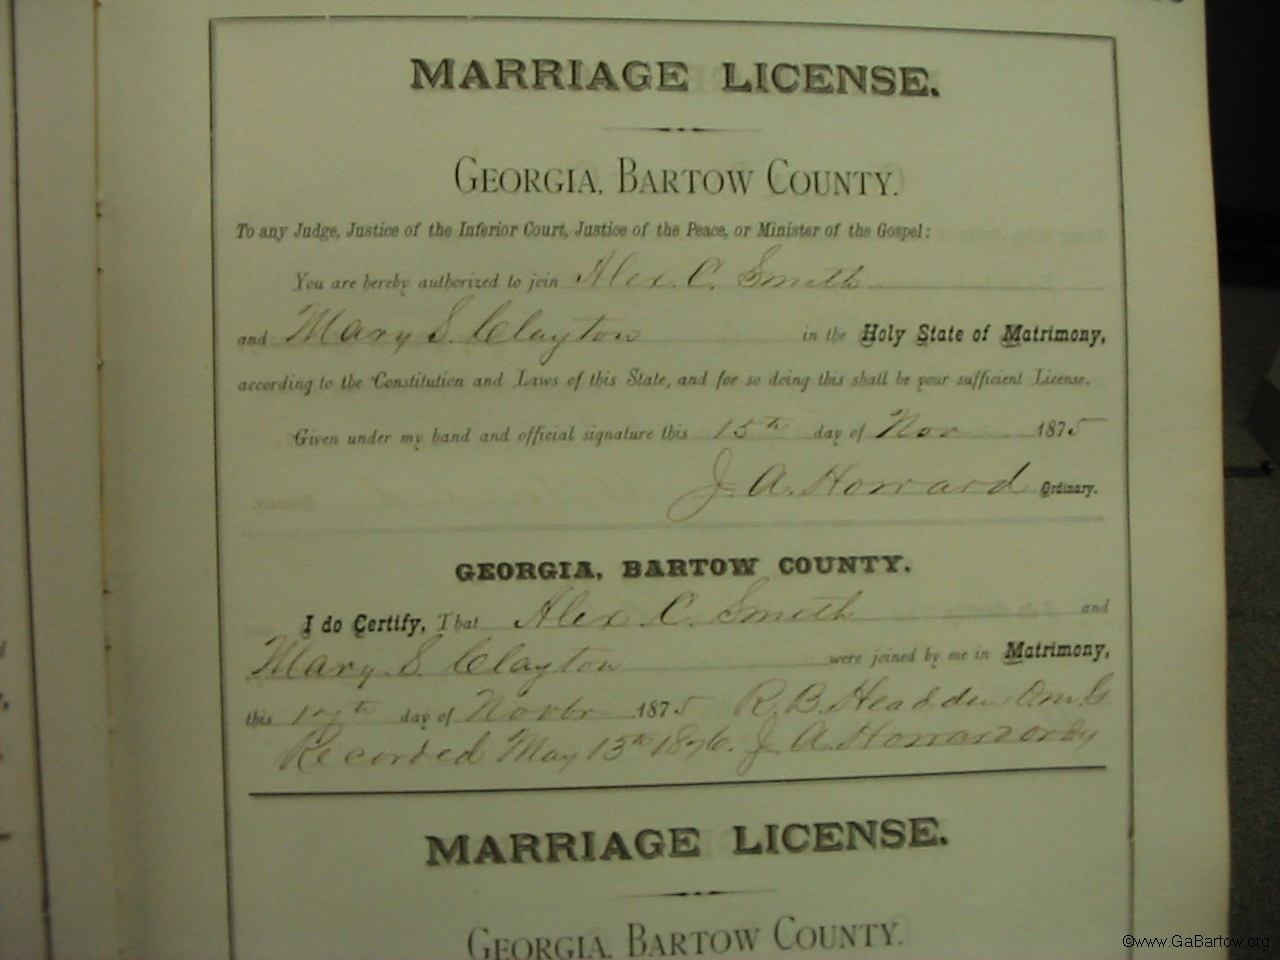 MARRIAGE LICENSE.
GEORGIA, BARTOW COUNTY.
To any Judge, Justice of the Inferior Court, Justice of the Peace, or Minister of the Gospel:
You are hereby authorized to join Alex. C. Smith
and Mary S. Clayton in the Holy State of Matrimony,
according to the Constitution and Laws of this State, and for so doing this shall be your sufficient License.
Given under my hand and official signature this 15th day of Nov 1875
J. A. Howard Ordinary.
GEORGIA, BARTOW COUNTY.
I do Certify, That Alex C. Smith and
Mary S. Clayton were joined by me in Matrimony,
this 17th day of Novbr 1875 R. B. Headden OmG
Recorded May 15th 1876. J. A. Howard ordy
MARRIAGE LICENSE.
GEORGIA, BARTOW COUNTY.
©www.GaBartow.org